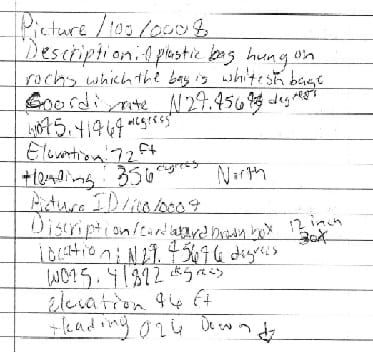 Picture /100/0008
Description: A plastic bag hung on
rocks which the bag is whitesh bage
Coordinate N29.9569 degrees
W095.41969 degrees
Elevation: 72 ft
Heading: 356 degrees North
Picture ID/100/0009
Discription/cardboard brown box 12 inch
location: N29.95696 degrees
W095.41892 degrees
elevation 96 ft
Heading 026 Down